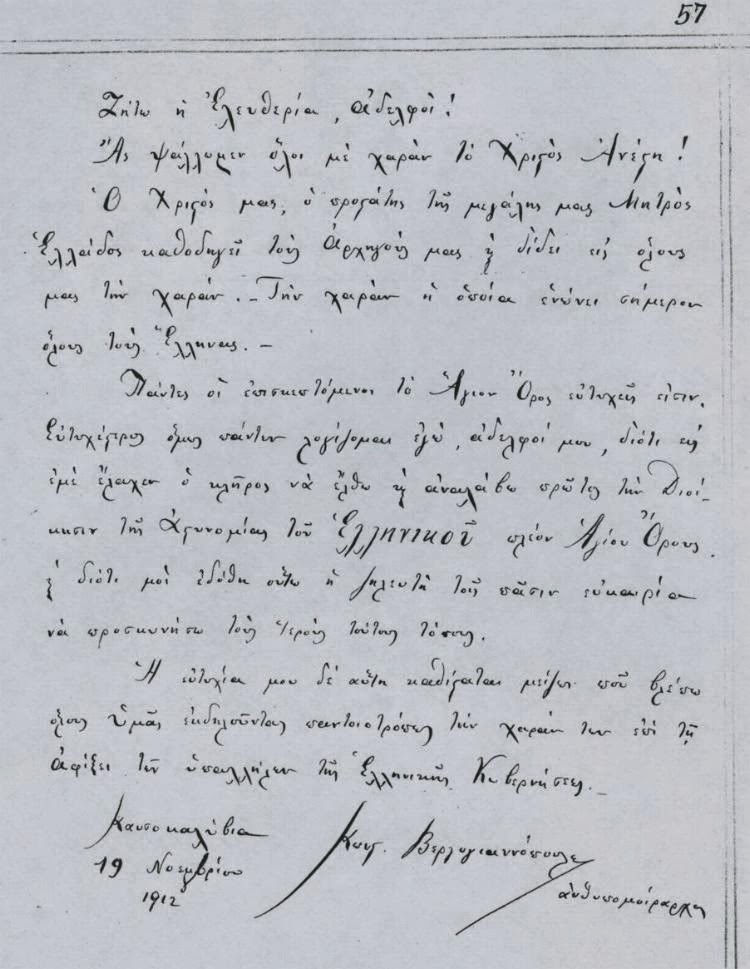 57
Ζήτω ἡ Ἐλευθερία, ἀδελφοί!
Ἂς ψάλλομεν ὅλοι μὲ χαρὰν τὸ Χριστὸς Ἀνέστη!
Ὁ Χριστός μας, ὁ προστάτης τῆς μεγάλης μας Μητρὸς
Ἑλλάδος καθοδηγεῖ τοὺς Ἀρχηγούς μας ϗ δίδει εἰς ὅλους
μας τὴν χαράν. – Τὴν χαρὰν ἡ ὁποία ἑνώνει σήμερον
ὅλους τοὺς Ἕλληνας. –
Πάντες οἱ ἐπισκεπτόμενοι τὸ Ἅγιον Ὄρος εὐτυχεῖς εἰσιν.
Εὐτυχέστερος ὅμως πάντων λογίζομαι ἐγώ, ἀδελφοί μου, διότι εἰς
ἐμὲ ἔλαχεν ὁ κλῆρος νὰ ἔλθω ϗ ἀναλάβω πρῶτος τὴν Διοί-
κησιν τῆς Ἀστυνομίας τοῦ Ἑλληνικοῦ πλέον Ἁγίου Ὄρους
ϗ διότι μοὶ ἐδόθη οὕτω ἡ ζηλευτὴ τοῖς πᾶσιν εὐκαιρία
νὰ προσκυνήσω τοὺς ἱεροὺς τούτους τόπους.
Ἡ εὐτυχία μου δὲ αὕτη καθίσταται μείζων ποῦ βλέπω
ὅλους ὑμᾶς ἐκδηλοῦντας παντοιοτρόπως τὴν χαράν των ἐπὶ τῇ
ἀφίξει τῶν ὑπαλλήλων τῆς Ἑλληνικῆς Κυβερνήσεως. –
Καυσοκαλύβια
19 Νοεμβρίου
1912
Κωνστ. Βεργογιαννόπουλος
ἀνθυπομοίραρχος